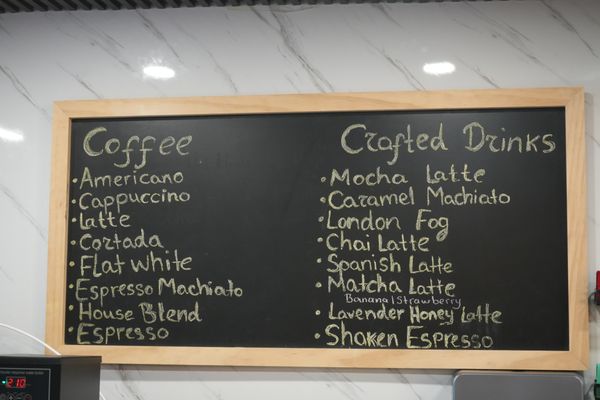 Coffee
Americano
Cappuccino
Latte
Cortada
Flat white
Espresso Machiato
House Blend
Espresso
Crafted Drinks
Mocha Latte
Caramel Machiato
London Fog
Chai Latte
Spanish Latte
Matcha Latte
Banana/Strawberry
Lavender Honey Latte
Shaken Espresso
210